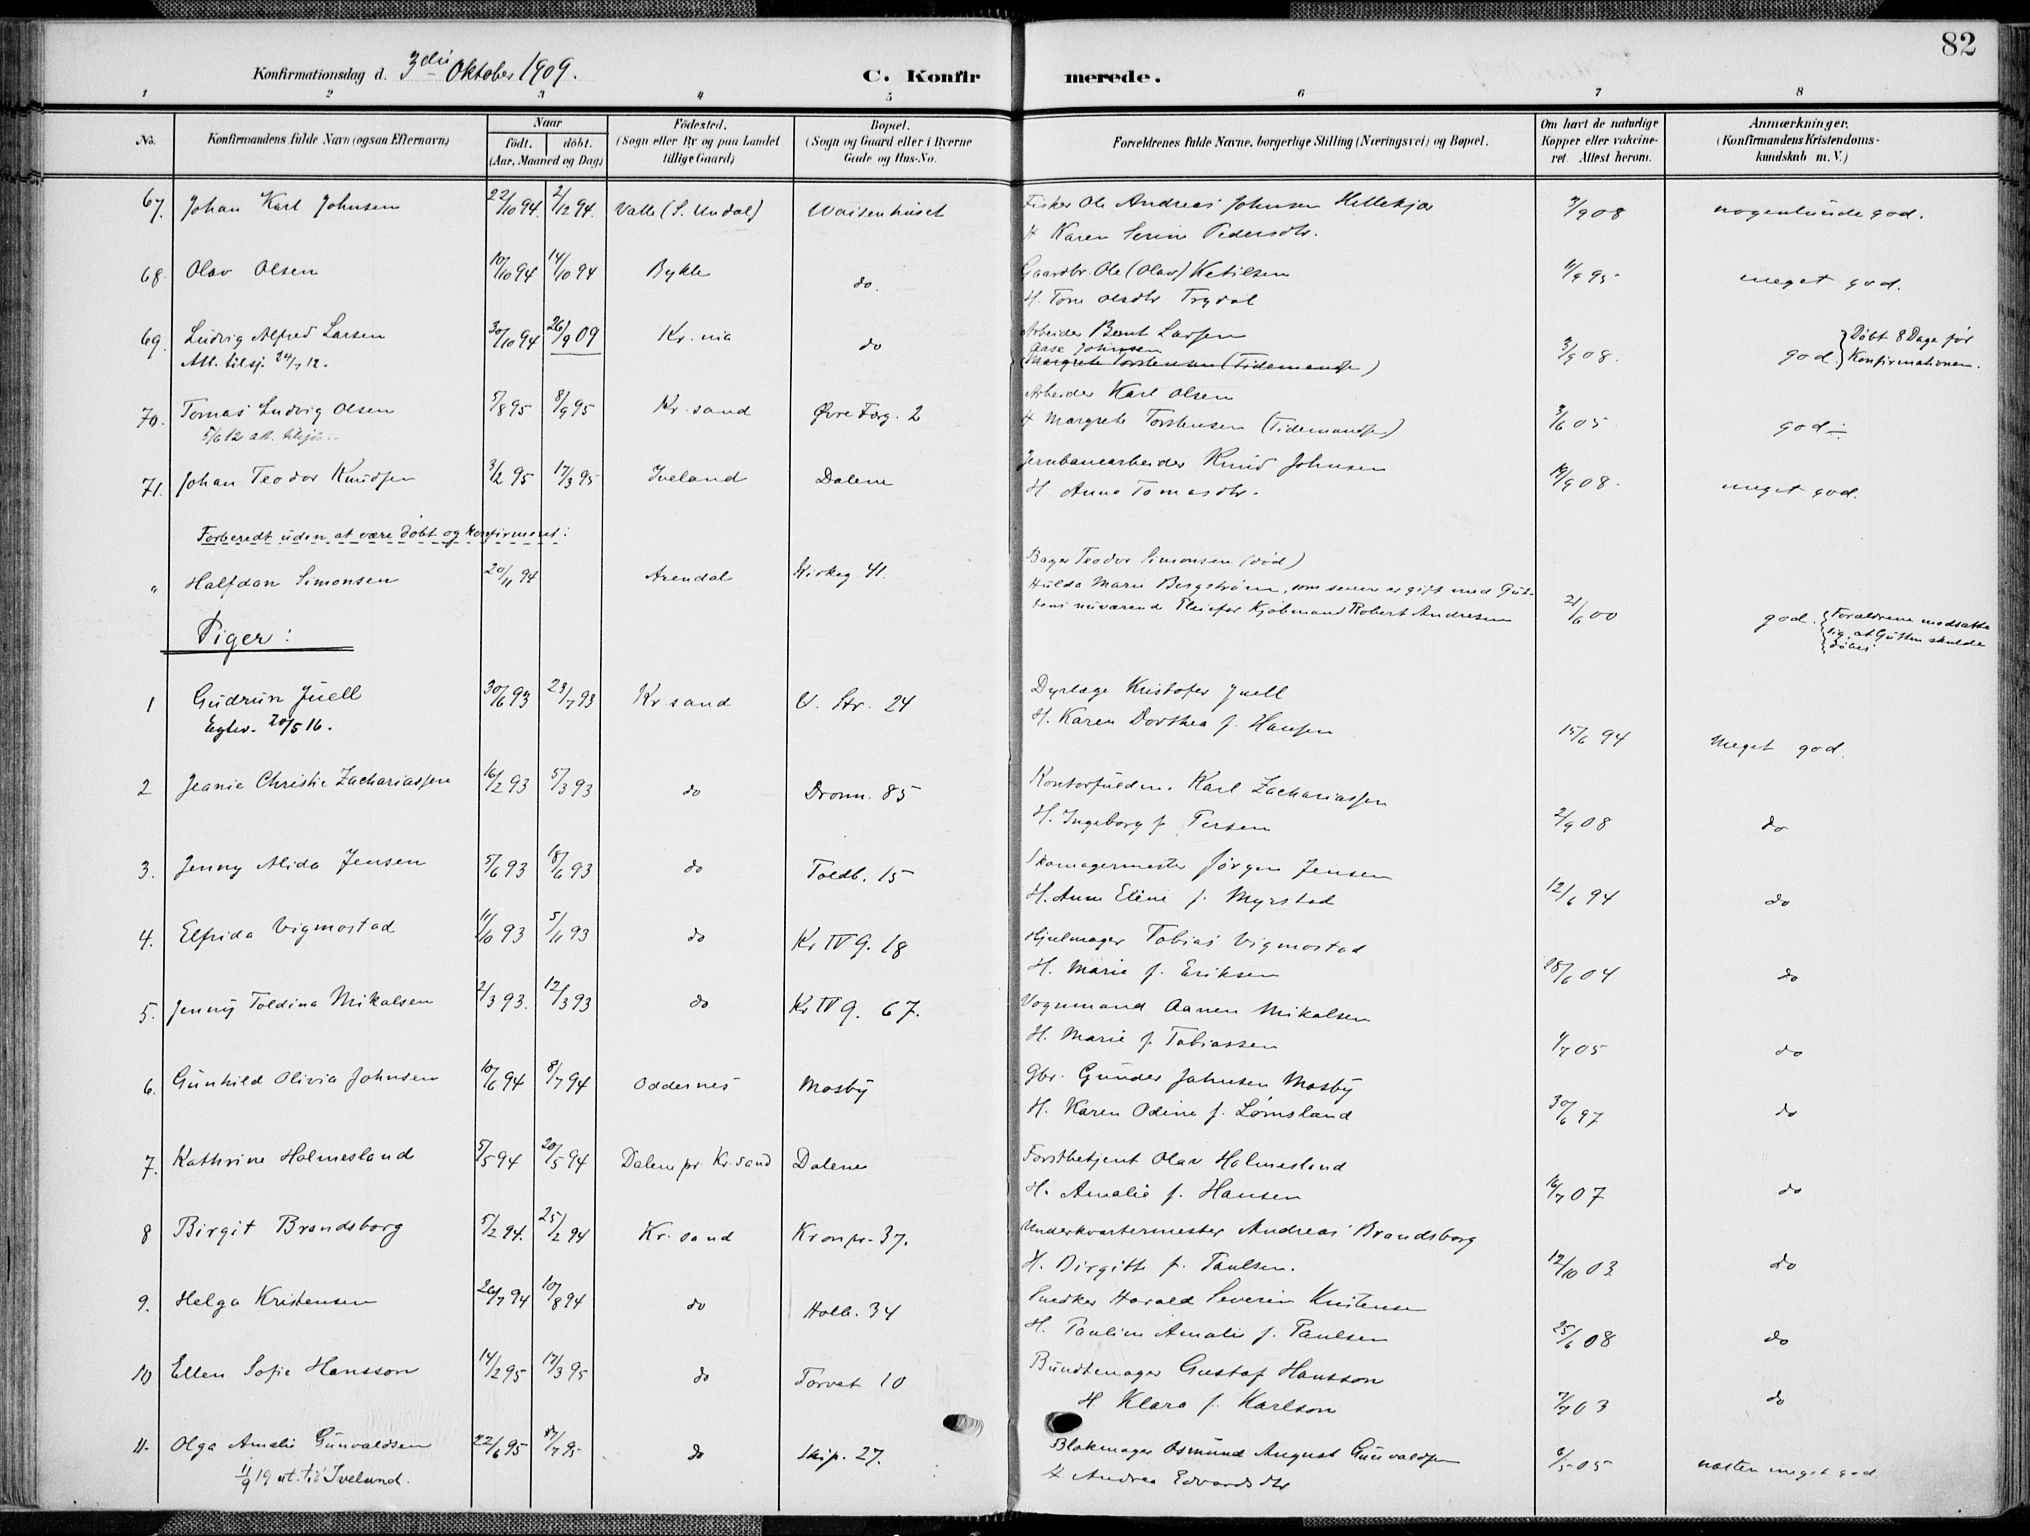 82
Konfirmationsdag d. 3die Oktober 1909.
C. Konfirmerede.
1 2 3 4 5 6 7 8
No. Konfirmandens fulde Navn (ogsaa Efternavn) Naar født. døbt. (Aar, Maaned og Dag) Fødested. (Sogn eller By og paa Landet tillige Gaard) Bopæl. (Sogn og Gaard eller i Byerne Gade og Hus-No. Forældrenes fulde Navne, borgerlige Stilling (Næringsvei) og Bopæl. Om havt de naturlige Kopper eller vakcineret. Attest herom. Anmærkninger. (Konfirmandens Kristendomskundskab m. V.)
67. Johan Karl Johnsen 22/10 94. 2/12 94. Valle (S. Undal) Waisenhuset Fisker Ole Andreas Johnsen Hillekjær 3/9 08 nogenlunde god.
H Karen Serine Pedersdtr.
68. Olav Olsen 10/10 94 14/10 94 Bykle do. Gaardbr. Ole (Olav) Ketilsen 11/9 95 meget god.
H. Tone Olsdtr Trydal
69. Ludvig Alfred Larsen 30/10 94 26/9 09 Kr.nia do Arbeider Bent Larsen 3/9 08. god. Døbt 8 Dage før Konfirmationen.
Att. tilsj. 24/7 12. Aase Johnsen
(Margrete Torstensen (Tidemandsen)
70. Tomas Ludvig Olsen 5/8 95 8/9 95 Kr.sand Øvre Færg. 2 Arbeider Karl Olsen 3/6 05 god ÷
5/6 12 att. tilsj. H Margrete Torstensen (Tidemandsen)
71. Johan Teodor Knudsen 3/2 95 17/3 95 Iveland Dalene Jernbanearbeider Knud Johnsen 19/9 08. meget god.
H. Anna Tomasdtr.
Forberedt uden at være døbt og konfirmeret:
" Halfdan Simonsen 20/11 94 Arendal Kirkeg 41. Bager Teodor Simonsen (død)
Hulda Marie Bergstrøm, som senere er gift med Guttens nuværende Pleiefar Kjøbmand Robert Andresen 21/6 00 god. Forældrene modsatte sig, at Gutten skulde døbes
Piger:
1 Gudrun Juell 30/6 93 23/7 93 Kr.sand V. Str. 24 Dyrlæge Kristofer Juell 15/6 94 Meget god.
Egtev. 20/5 16. H. Karen Dorthea f. Hansen
2 Jeanie Christie Zachariassen 16/2 93 5/3 93 do Dronn. 85 Kontorfuldm. Karl Zachariassen 2/9 08 do
H. Ingeborg f. Persen
3. Jenny Alida Jensen 5/6 93 18/6 93 do Toldb. 15 Skomagermester Jørgen Jensen 12/6 94 do
H. Anne Eline f. Myrstad
4. Elfrida Vigmostad 11/10 93 5/11 93 do Kr IV g. 18 Hjulmager Tobias Vigmostad 28/6 04 do
H. Marie f. Eriksen
5. Jenny Toldina Mikalsen 2/3 93. 12/3 93 do Kr IV g. 67. Vognmand Aanen Mikalsen 1/7 05 do
H. Marie f. Tobiassen
6. Gunhild Olivia Johnsen 10/6 94 8/7 94 Oddernes Mosby Gbr. Gunder Johnsen Mosby 30/6 97 do
H. Karen Odine f. Lømsland
7. Kathrine Holmesland 5/5 94 20/5 94 Dalene pr. Kr.sand Dalene Forstbetjent Olav Holmesland 16/7 07 do
H. Amalie f. Hansen
8 Birgit Brandsborg 5/2 94. 25/2 94 Kr.sand Kronpr. 37. Underkvartermester Andreas Brandsborg 12/10 03 do
H. Birgitte f. Paulsen.
9. Helga Kristensen 26/7 94 10/8 94 do Holb. 34 Snedker Harald Severin Kristensen 25/6 08 do
H. Pauline Amalie f. Paulsen
10 Ellen Sofie Hansson 14/2 95 17/3 95 do Torvet 10 Bundtmager Gustaf Hansson 7/7 03 do
H Klara f. Karlson
11. Olga Amalie Gunvaldsen 22/6 95 /7 95 do Skip. 27. Blokmager Osmund August Gunvaldsen 6/5 05 næsten meget god
11/9 19 ut. til Iveland. H Andrea Edvardsdtr